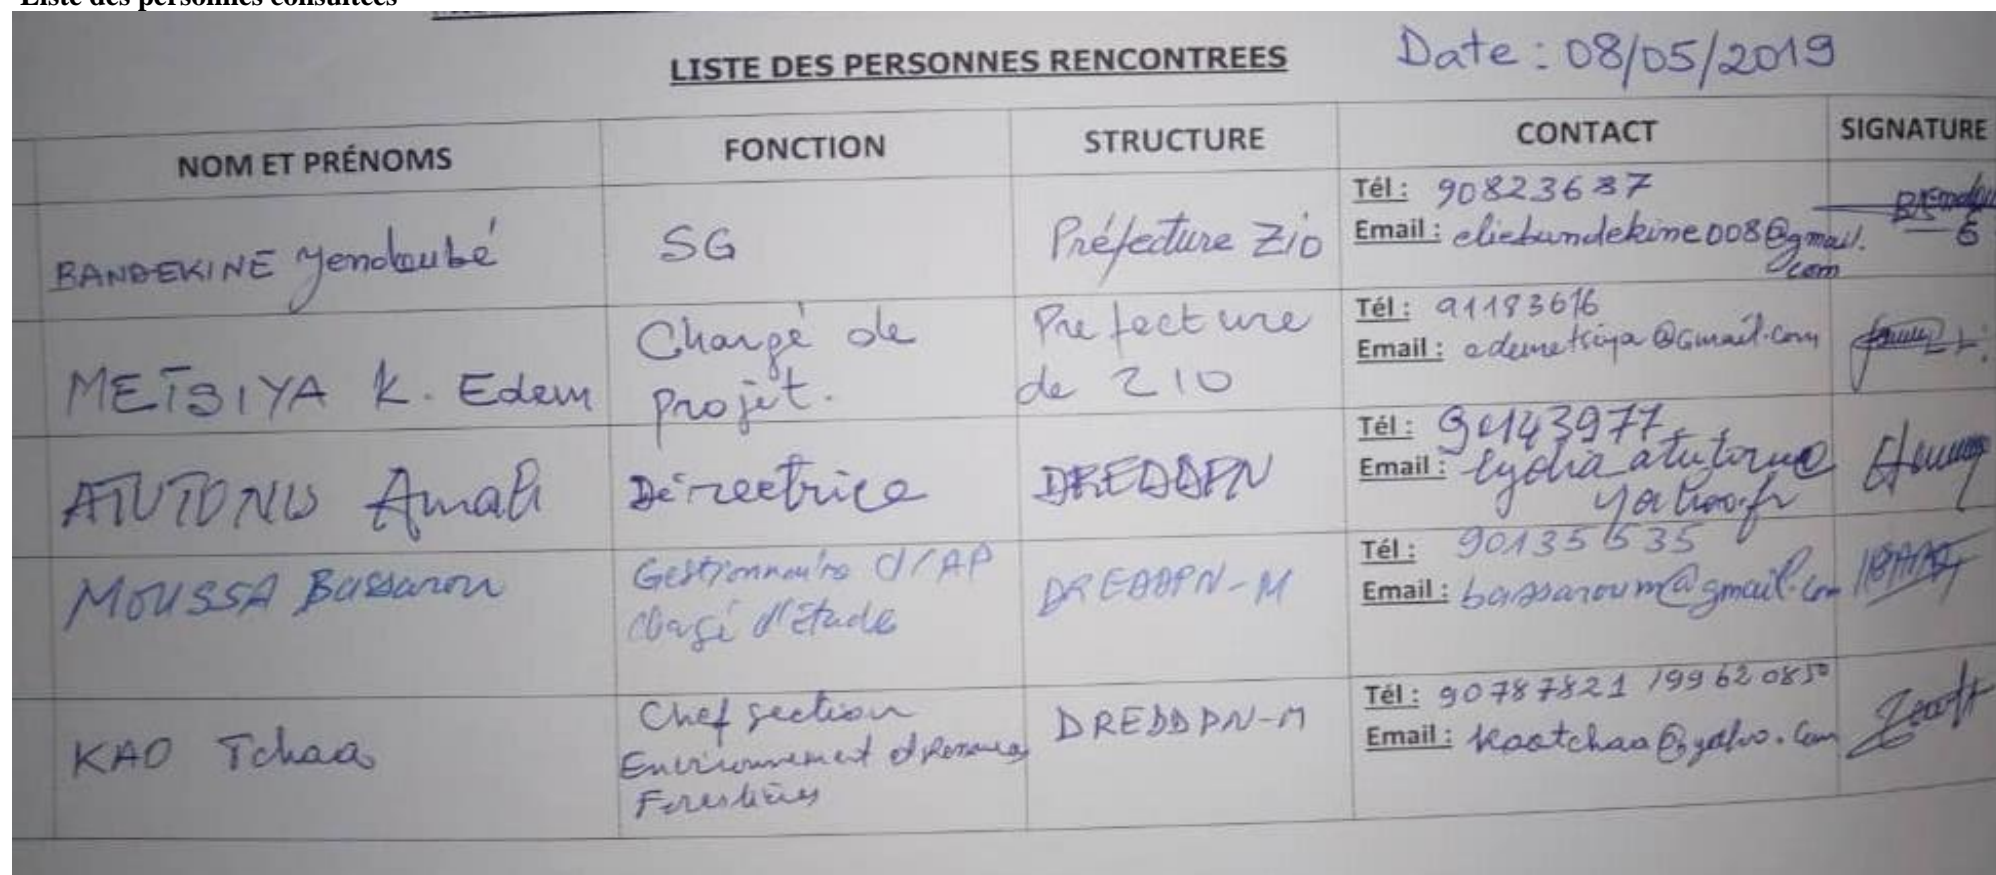 Liste des personnes consultées
LISTE DES PERSONNES RENCONTREES
Date : 08/05/2019
NOM ET PRÉNOMS FONCTION STRUCTURE CONTACT SIGNATURE
BANDEKINE Yendoubé SG Préfecture Zio
Tél : 90823687
Email : eliebandekine008@gmail.
com
METSIYA K. Edem
Chargé de
projet.
Prefecture
de ZIO
Tél : 91183616
Email : edemetsiya@Gmail.com
ATUTONU Amah Directrice DREDDPN
Tél :
Email : lydia atutonu@
yahoo.fr
MOUSSA Bassarou
Gestionnaire d'AP
Chargé d'étude
DREDDPN-M
Tél : 90135535
Email : bassaroum@gmail.com
KAO Tchaa
Chef section
Environnement et Ressources
Forestières
DREDDPN-M
Tél : 90787821 / 99620850
Email : kaotchaa@yahoo.com